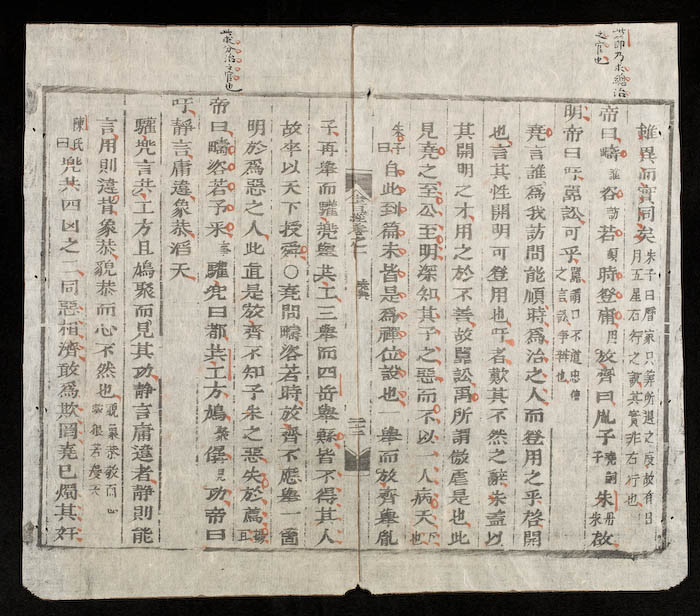 此節乃求總治
之官也
雖異而實同矣朱子曰曆家只筭所退之度故有日
月五星右行之說其實非右行也
帝曰疇誰咨訪若順時登庸用放齊曰胤子堯嗣子朱丹朱啟
明帝曰吁嚚訟可乎嚚謂口不道忠信
之言訟爭辯也
堯言誰爲我訪問能順時爲治之人而登用之乎啓開
也言其性開明可登用也吁者歎其不然之辭朱蓋以
其開明之才用之於不善故嚚訟禹所謂傲虐是也此
見堯之至公至明深知其子之惡而不以一人病天下也
朱子曰自此到篇末皆是爲禪位設也舉而放齊舉胤
堯典
子再舉而驩兜舉共工三舉而四岳舉鯀皆不得其人
故卒以天下授舜○堯問疇咨若時放齊不應舉一箇
明於爲惡之人此直是放齊不知子朱之惡失於薦揚且
此求分治之官也
帝曰疇咨若予采事驩兜曰都共工方鳩聚僝見功帝曰
吁靜言庸違象恭滔天
驩兜言共工方且鳩聚而見其功靜言庸違者靜則能
言用則違背象恭貌恭而心不然也
陳氏曰兜共四凶之二同惡相濟敢爲欺罔堯已燭其奸